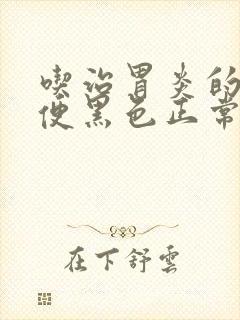 喫治胃炎的
便黑色正常
在下舒雲